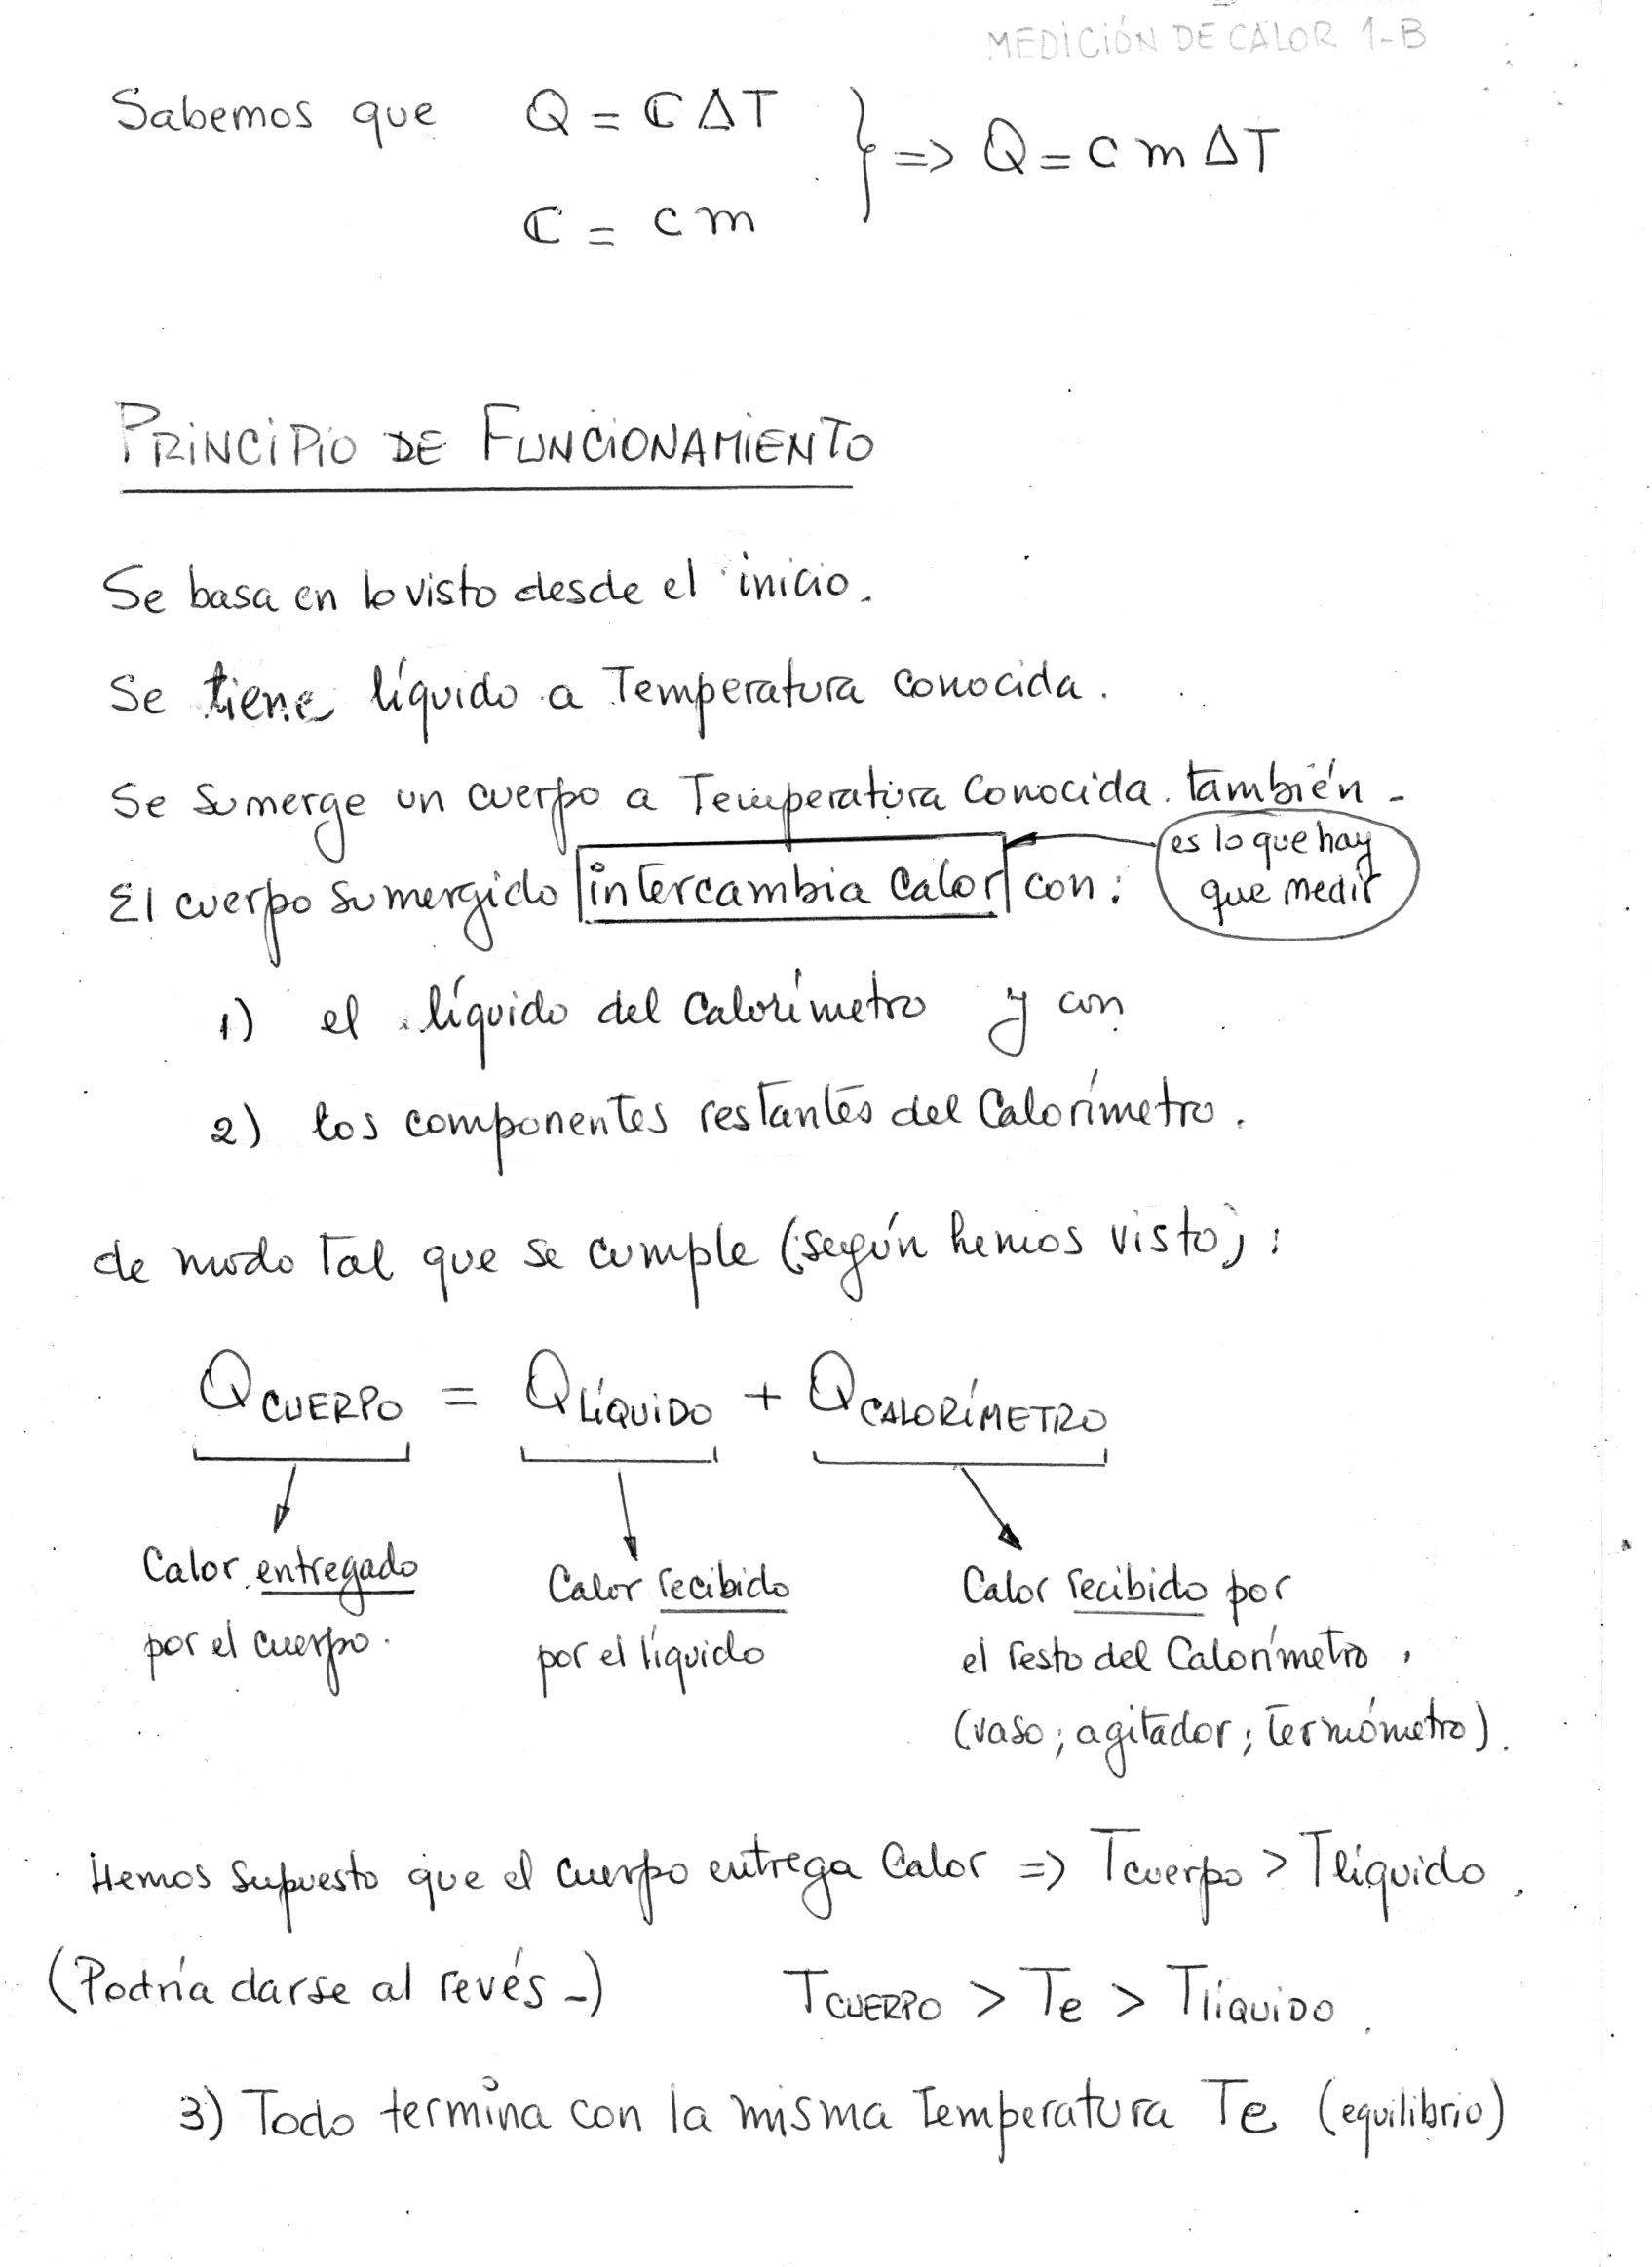 MEDICIÓN DE CALOR 1-B
Sabemos que Q = ℂ ΔT } => Q = c m ΔT
ℂ = c m
PRINCIPIO DE FUNCIONAMIENTO
Se basa en lo visto desde el inicio.
Se tiene líquido a Temperatura conocida.
Se sumerge un cuerpo a Temperatura conocida también -
El cuerpo sumergido intercambia calor con:
es lo que hay
que medir
1) el líquido del calorímetro y con
2) los componentes restantes del Calorímetro.
de modo tal que se cumple (según hemos visto):
Q CUERPO = Q LÍQUIDO + Q CALORÍMETRO
Calor entregado
por el cuerpo.
Calor recibido
por el líquido
Calor recibido por
el resto del Calorímetro.
(vaso; agitador; termómetro).
Hemos supuesto que el cuerpo entrega Calor => Tcuerpo > Tlíquido.
(Podría darse al revés -) TCUERPO > Te > TlíQUIDO.
3) Todo termina con la misma Temperatura Te (equilibrio)